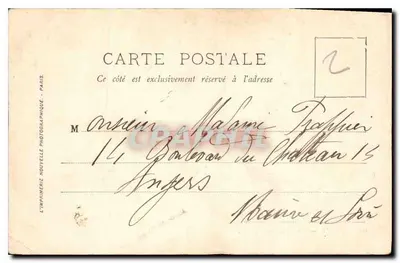 CARTE POSTALE
Ce côté est exclusivement réservé à l'adresse
2
Monsieur Madame
14 Boulevard du Château 14
Angers
Maine et Loire
L'IMPRIMERIE NOUVELLE PHOTOGRAPHIQUE - PARIS